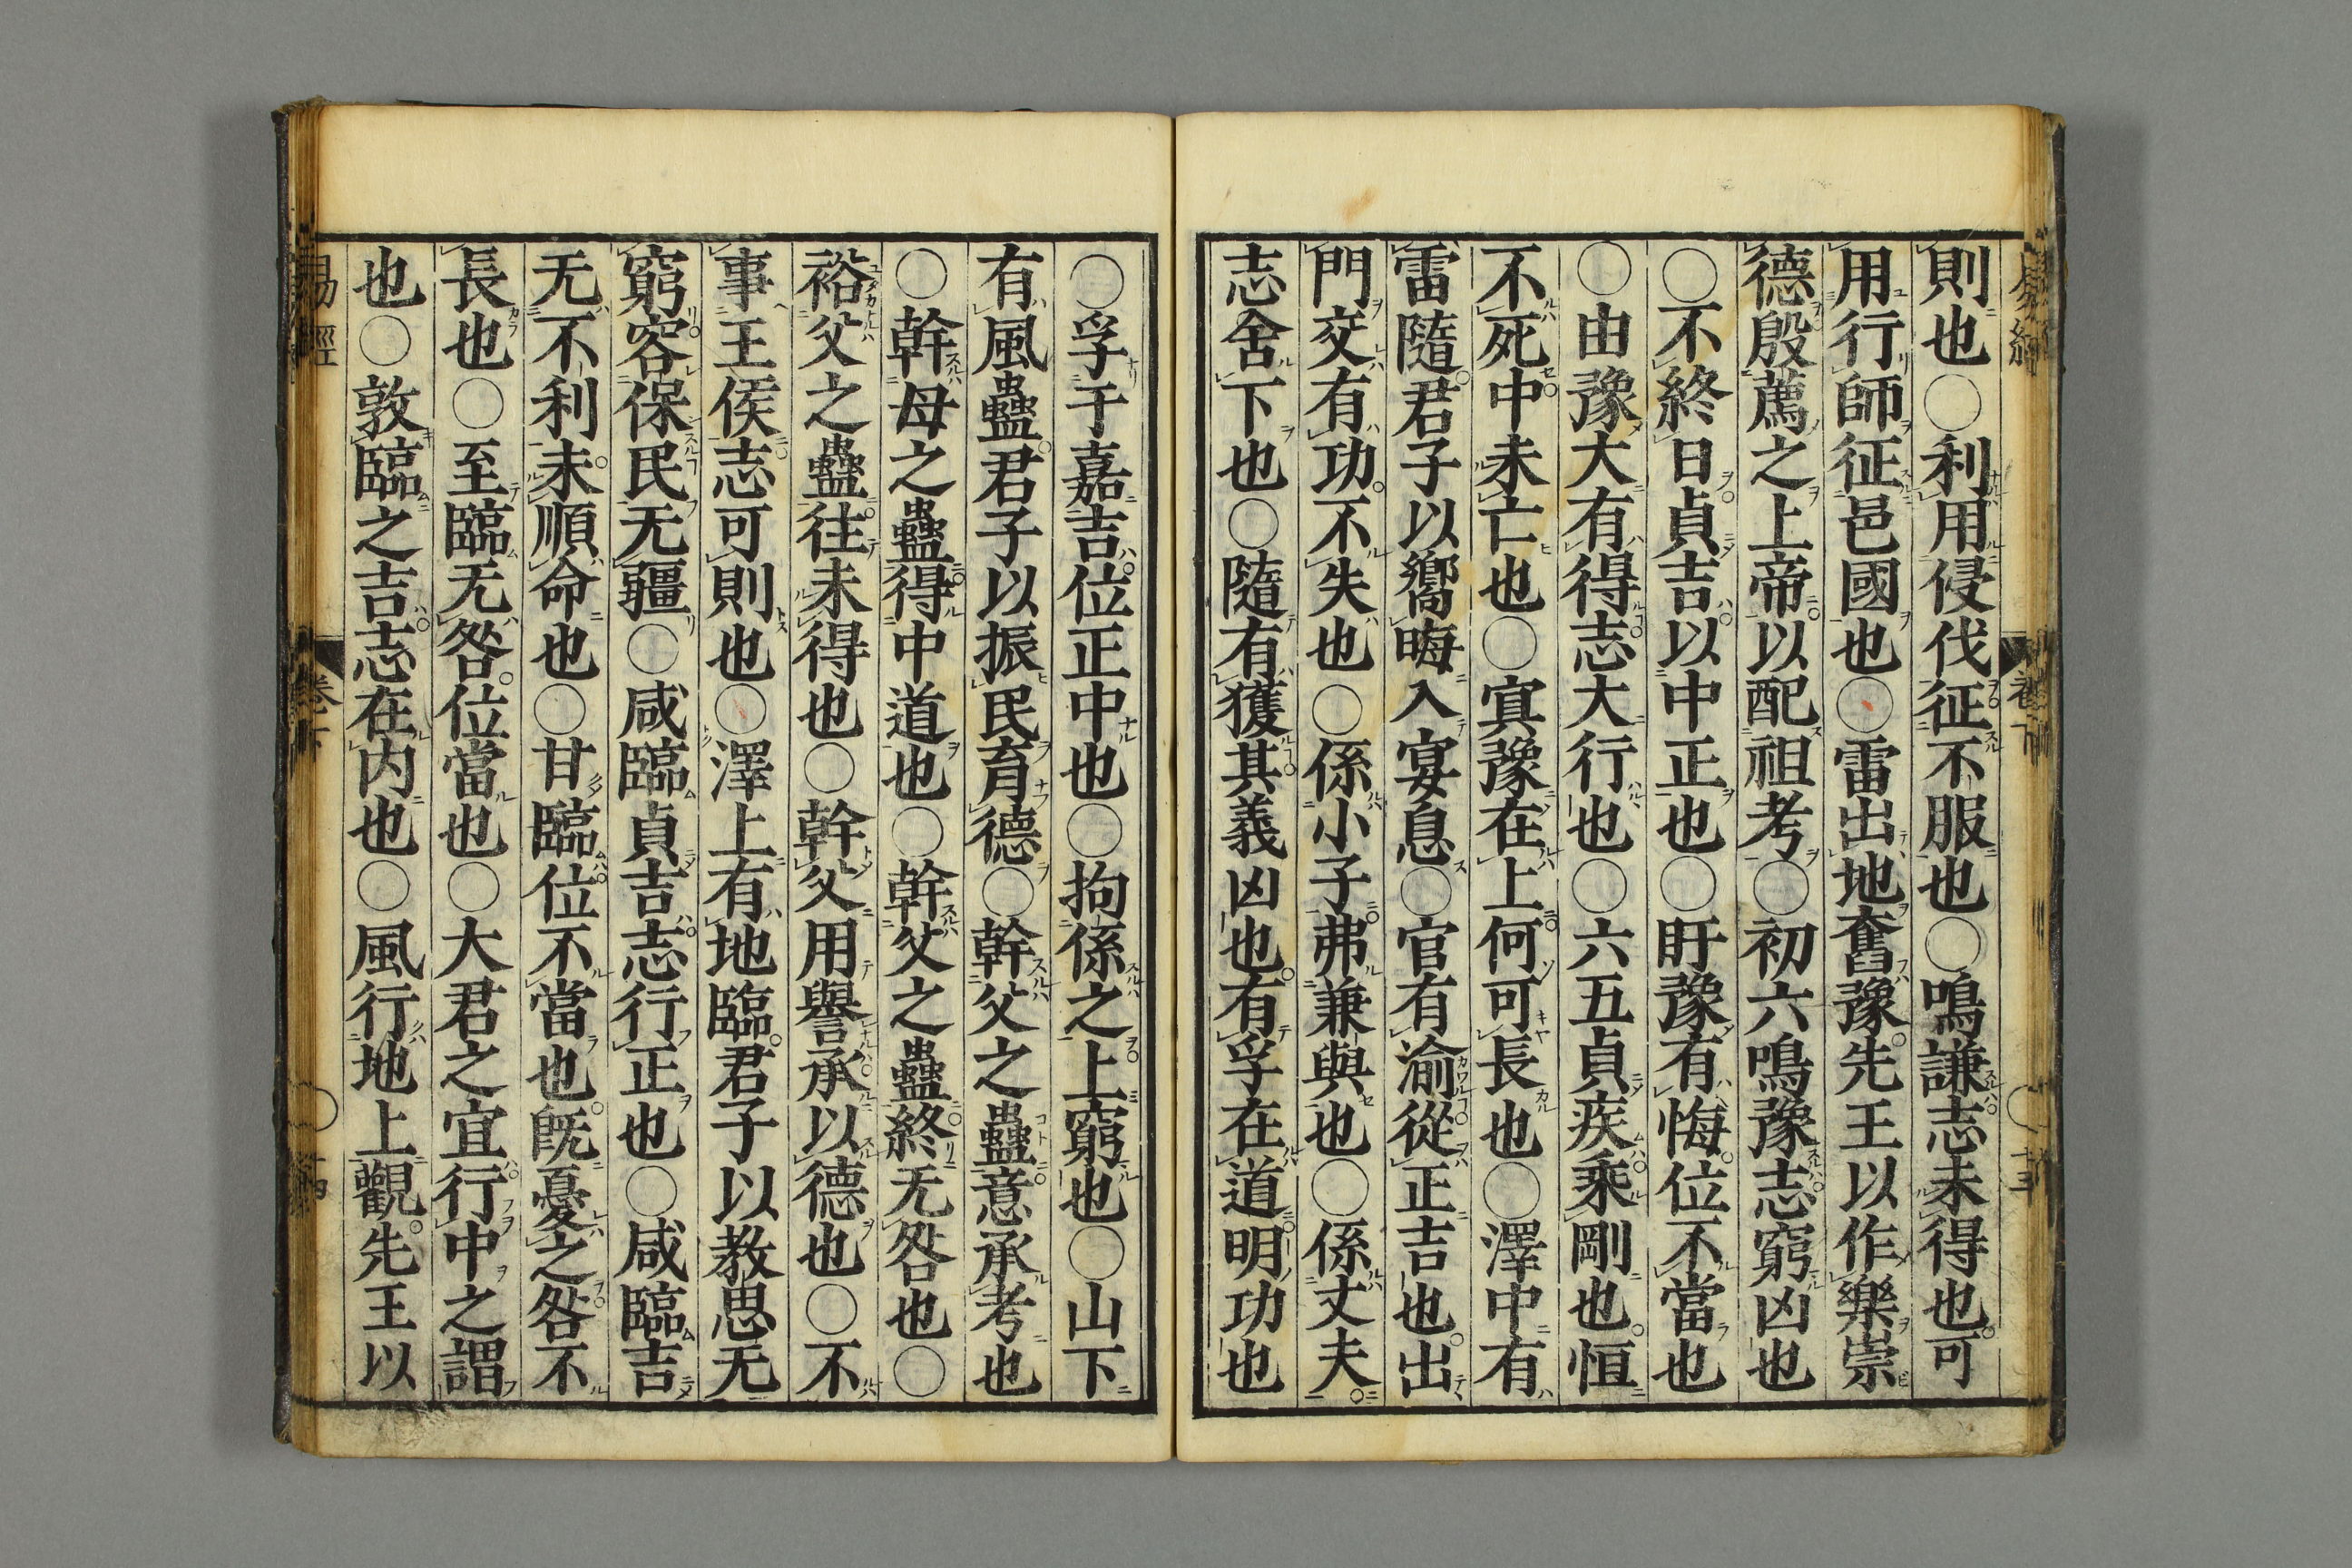 則也○利用侵伐征不服也○鳴謙志未得也可
用行師征邑國也○雷出地奮豫先王以作樂崇
德殷薦之上帝以配祖考○初六鳴豫志窮凶也
○不終日貞吉以中正也○盱豫有悔位不當也
○由豫大有得志大行也○六五貞疾乘剛也恒
不死中未亡也○冥豫在上何可長也○澤中有
雷隨君子以嚮晦入宴息○官有渝從正吉也出
門交有功不失也○係小子弗兼與也○係丈夫
志舍下也○隨有獲其義凶也有孚在道明功也
○孚于嘉吉位正中也○拘係之上窮也○山下
有風蠱君子以振民育德○幹父之蠱意承考也
○幹母之蠱得中道也○幹父之蠱終无咎也○
裕父之蠱往未得也○幹父用譽承以德也○不
事王侯志可則也○澤上有地臨君子以教思无
窮容保民无疆○咸臨貞吉志行正也○咸臨吉
无不利未順命也○甘臨位不當也既憂之咎不
長也○至臨无咎位當也○大君之宜行中之謂
也○敦臨之吉志在内也○風行地上觀先王以
易經
卷下